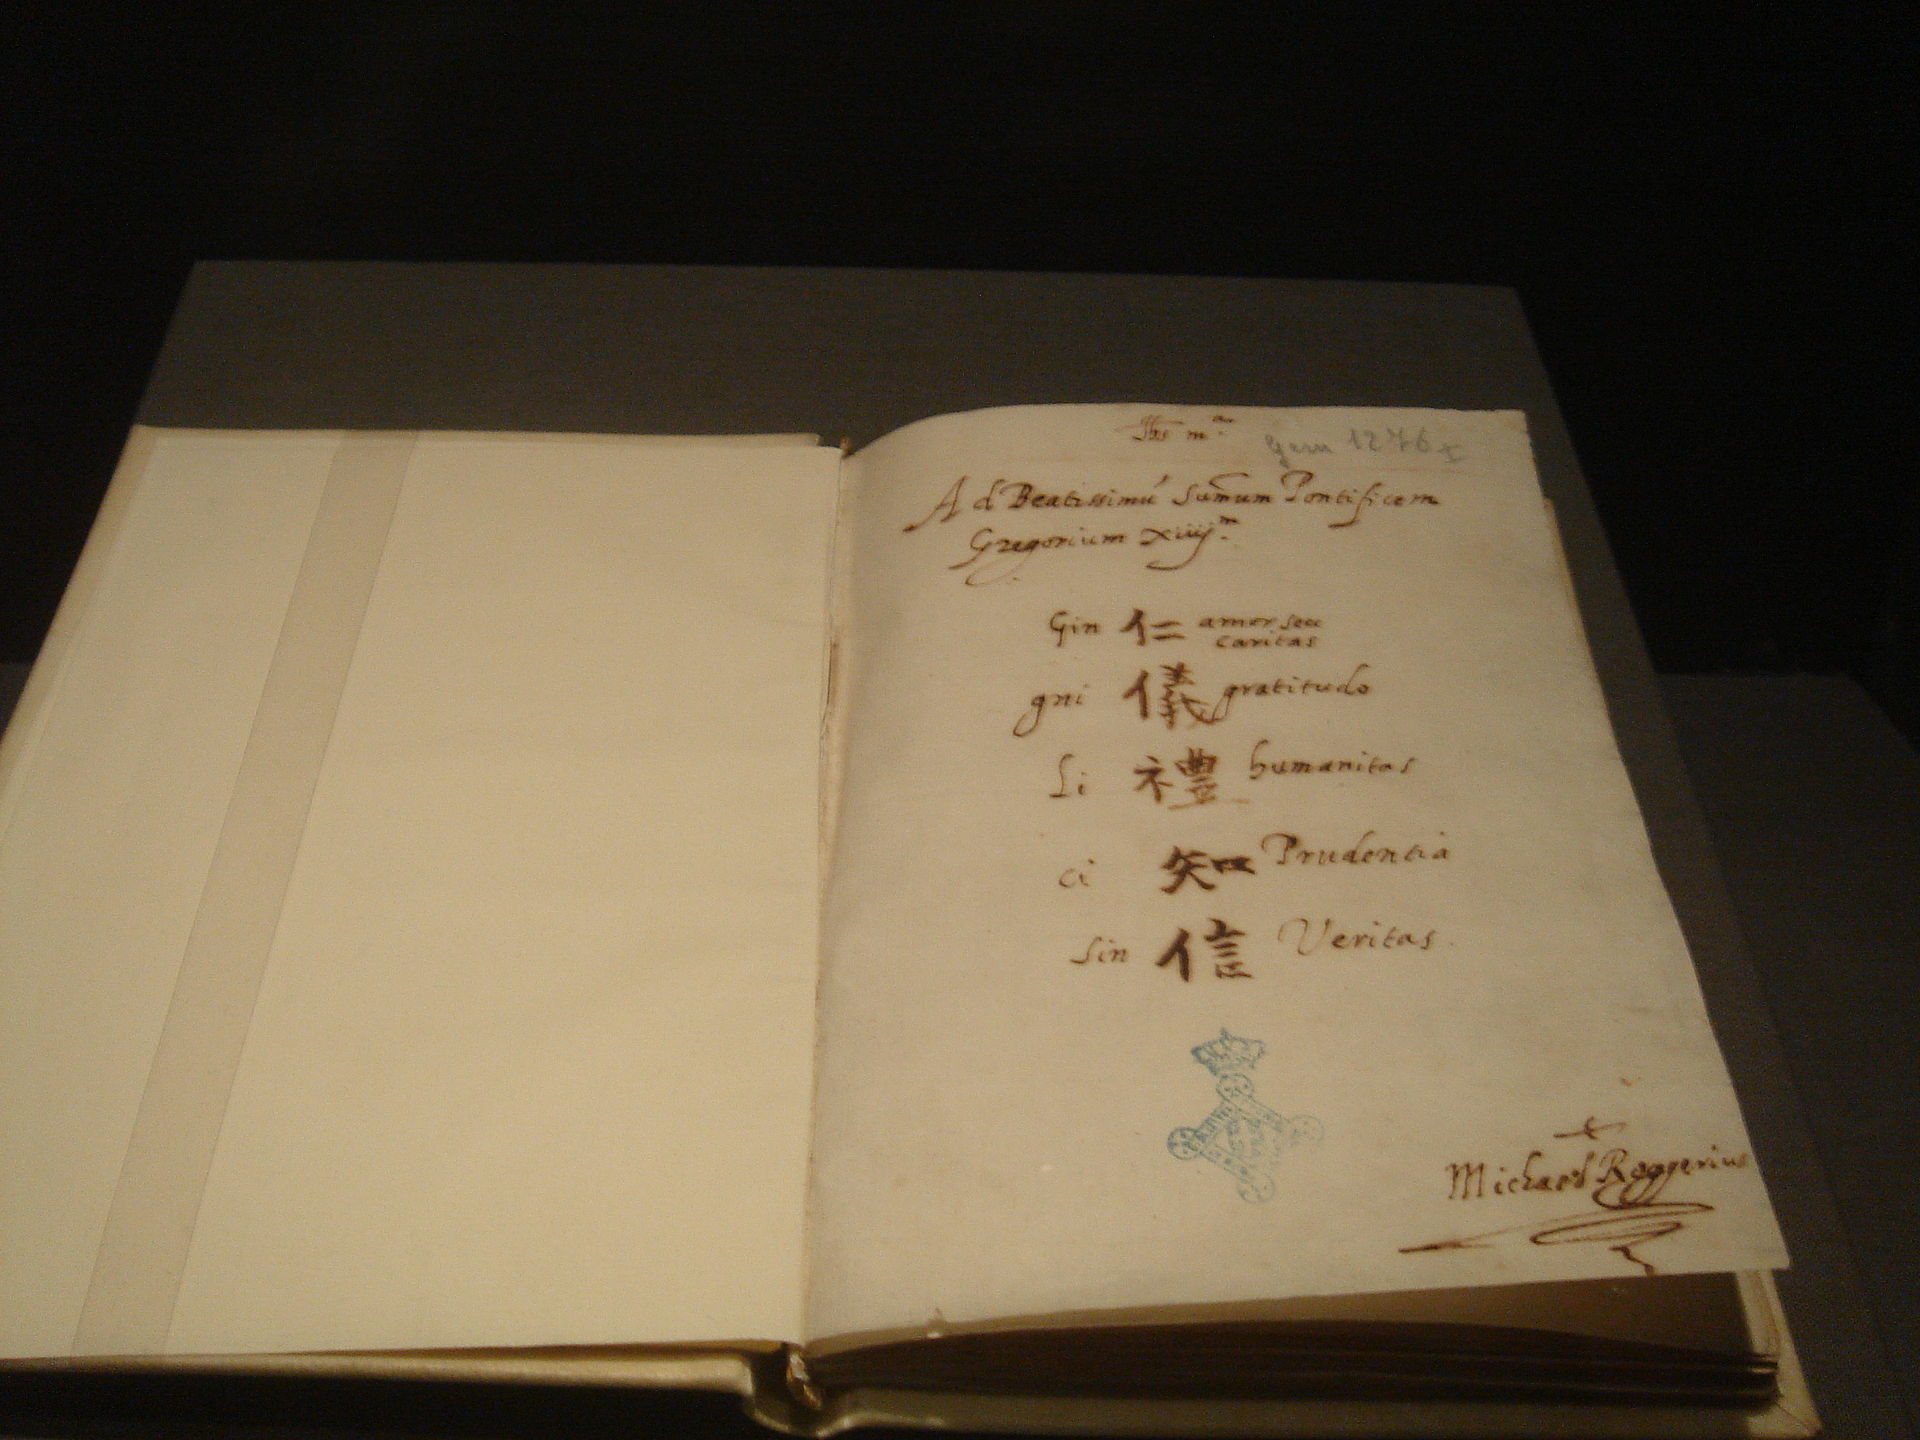 Ihs mᵃ
Gem 1276
Ad Beatissimú Sum̄um Pontificem
Gregorium xiiijᵐ.
Gin 仁 amor seu
caritas
gni 儀 gratitudo
Li 禮 humanitas
ci 知 Prudentia
sin 信 Veritas.
Michael Roggerius